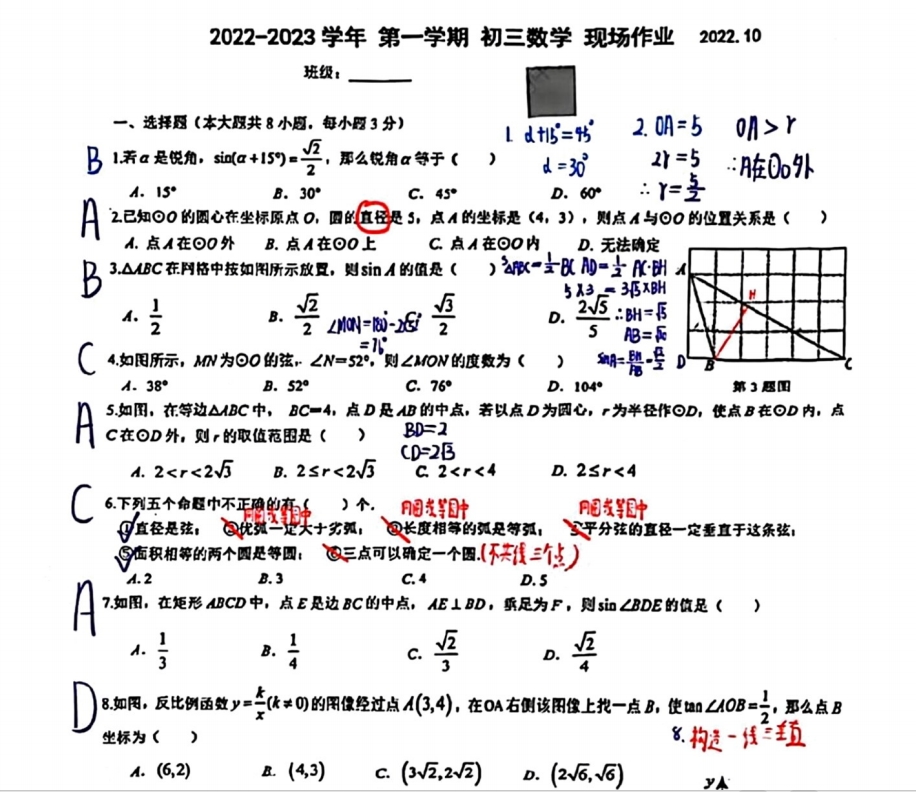 2022-2023 学年 第一学期 初三数学 现场作业 2022.10
班级：
一、选择题（本大题共 8 小题，每小题 3 分）
1. α+15°=45°
α=30°
2. OA=5
2r=5
∴ r=5/2
OA>r
∴A在⊙O外
B 1.若α是锐角，sin(α+15°)=√2/2，那么锐角α等于（ ）
A. 15° B. 30° C. 45° D. 60°
A 2.已知⊙O 的圆心在坐标原点 O，圆的直径是 5，点 A 的坐标是（4，3），则点 A 与⊙O 的位置关系是（ ）
A. 点 A 在⊙O 外 B. 点 A 在⊙O 上 C. 点 A 在⊙O 内 D. 无法确定
B 3.△ABC 在网格中按如图所示放置，则 sin A 的值是（ ）
S△ABC=1/2 BC·AD=1/2 AC·BH
5×3=3√5×BH
∴BH=√5
AB=√10
sinA=BH/AB=√2/2
A. 1/2 B. √2/2 C. √3/2 D. 2√5/5
A
H
D B C
第 3 题图
∠MON=180°-2×52°
=76°
C 4.如图所示，MN 为⊙O 的弦，∠N=52°，则∠MON 的度数为（ ）
A. 38° B. 52° C. 76° D. 104°
A 5.如图，在等边△ABC 中， BC=4，点 D 是 AB 的中点，若以点 D 为圆心，r 为半径作⊙D，使点 B 在⊙D 内，点
C 在⊙D 外，则 r 的取值范围是（ ）
BD=2
CD=2√3
A. 2<r<2√3 B. 2≤r<2√3 C. 2<r<4 D. 2≤r<4
C 6.下列五个命题中不正确的有（ ）个.
同圆或等圆中 同圆或等圆中 同圆或等圆中
①直径是弦； ②优弧一定大于劣弧； ③长度相等的弧是等弧； ④平分弦的直径一定垂直于这条弦；
⑤面积相等的两个圆是等圆； ⑥三点可以确定一个圆.(不共线三个点)
A. 2 B. 3 C. 4 D. 5
A 7.如图，在矩形 ABCD 中，点 E 是边 BC 的中点，AE⊥BD，垂足为 F，则 sin∠BDE 的值是（ ）
A. 1/3 B. 1/4 C. √2/3 D. √2/4
D 8.如图，反比例函数 y=k/x(k≠0)的图像经过点 A(3,4)，在OA 右侧该图像上找一点 B，使tan∠AOB=1/2，那么点 B
坐标为（ ）
8. 构造一线三垂直
A. (6,2) B. (4,3) C. (3√2,2√2) D. (2√6,√6)
y